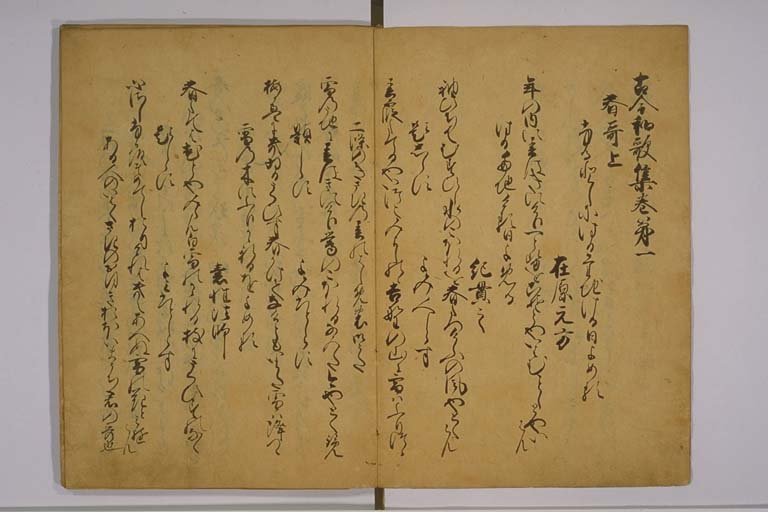 古今和歌集巻第一
春哥上
ふるとしに春たちける日よめる
在原元方
年の内に春はきにけり一とせをこそとやいはむことしとやいはん
はるたちける日よめる
紀貫之
袖ひちてむすひし水のこほれるを春たつけふの風やとくらん
題しらす よみ人しらす
春霞たてるやいつこみよしのゝ吉野の山に雪はふりつゝ
二條のきさきの春のはしめの御うた
雪の内に春はきにけり鶯のこほれるなみた今やとくらん
題しらす よみ人しらす
梅かえにきゐるうくひす春かけてなけともいまた雪はふりつゝ
雪の木にふりかゝれるをよめる
素性法師
春たては花とやみらん白雪のかゝれる枝にうくひすのなく
題しらす よみ人しらす
心さしふかくそめてしおりけれはきえあへぬ雪の花とみゆらん
ある人のいはくさきのおほきおほいまうち君の哥也